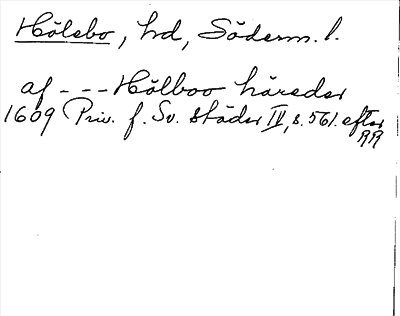 Hölebo, hd, Söderm. l.
af - - - Hölboo häreder
1609 Priv. f. Sv. städer IV, s. 561. efter
RR